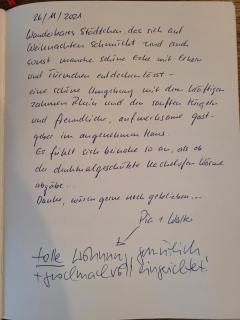 26/11/2021
Wunderbares Städtchen, das sich auf
Weihnachten schmückt und auch
sonst manche schöne Ecke mit Erkern
und Türmchen entdecken lässt -
eine schöne Umgebung mit dem kräftigen
zahmen Rhein und den sanften Hügeln
und freundliche, aufmerksame Gast-
geber im angenehmen Haus.
Es fühlt sich beinahe so an, als ob
der denkmalgeschützte Kachelofen Wärme
abgäbe...
Danke, wären gerne noch geblieben...
Pia + Walter
tolle Wohnung, gemütlich
+ geschmackvoll eingerichtet!